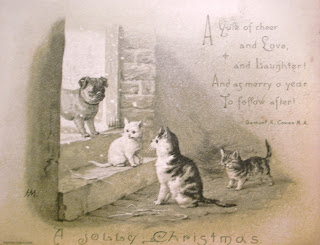 A Yule of cheer
and Love,
and Laughter!
And as merry a year
To follow after!
Samuel K. Cowan M.A.
HM.
A Jolly Christmas